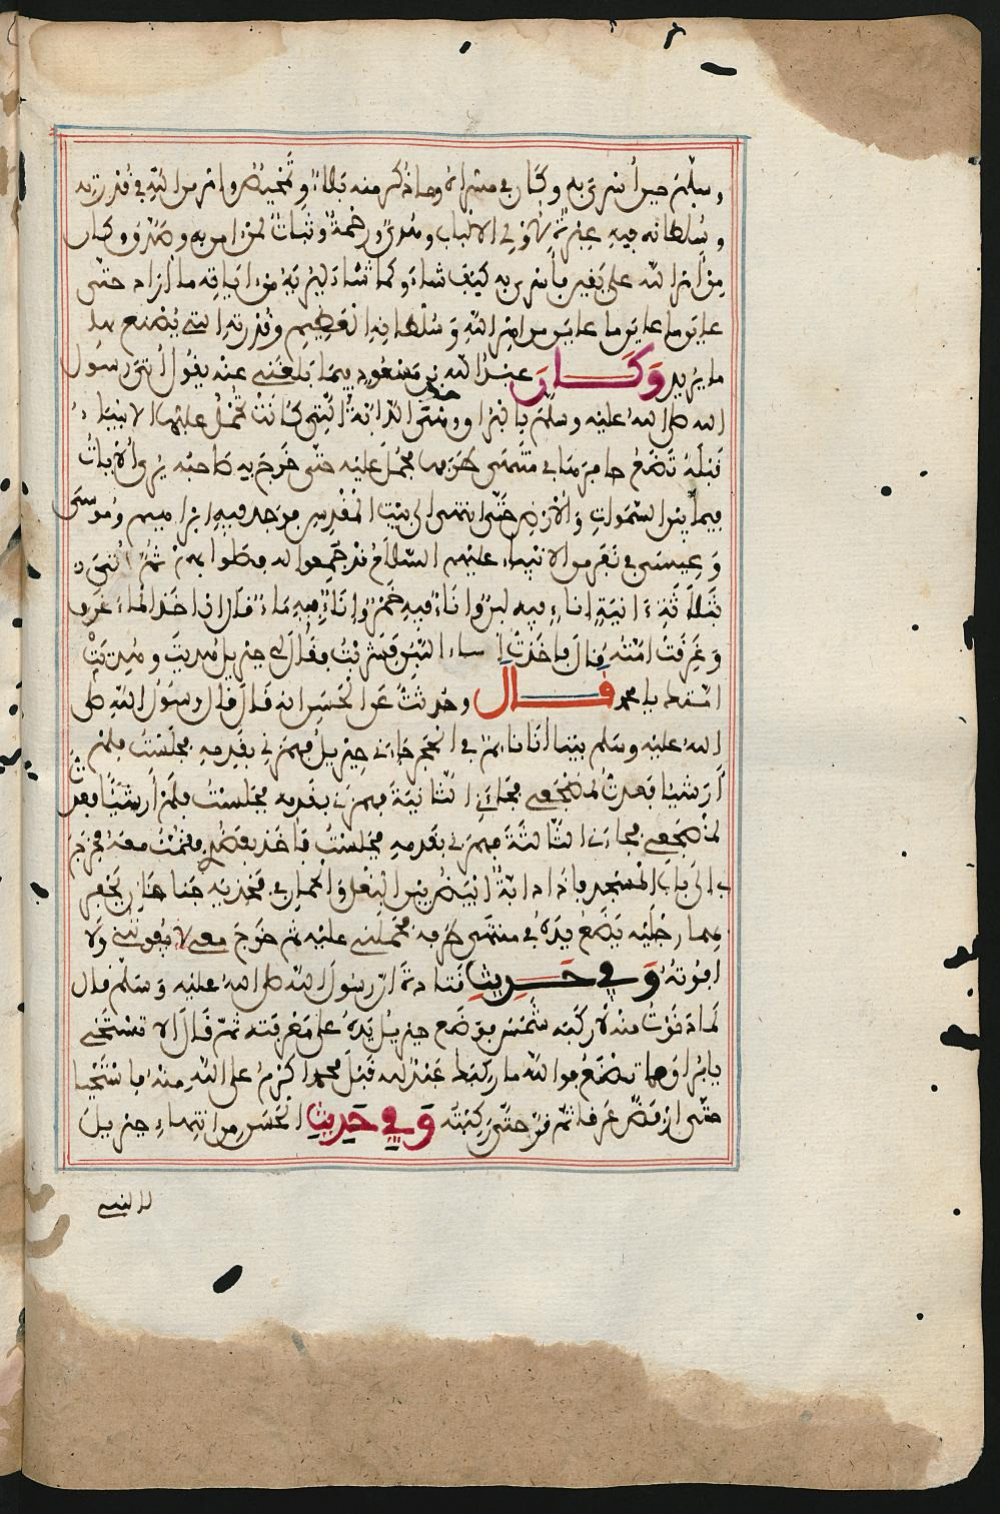 وسلم حين أسري به وكان في مسراه وما ذكر منه بلاء وتمحيص وامر من الله في قدرته
وسلطانه فيه عبرة لأولي الالباب وهدى ورحمة وثبات لمن امن به وصدق وكان
من امر الله على يقين فأسرى به كيف شاء وكما شاء ليريه من اياته ما اراد حتى
عاين ما عاين ما عاين من امر الله وسلطانه العظيم وقدرته التي يصنع بها
ما يريد وكان عبد الله بن مسعود فيما بلغني عنه يقول أتي رسول
الله صلى الله عليه وسلم بالبراق وهي الدابة التي كانت تحمل عليها الانبياء
قبله تضع حافرها في منتهى طرفها فحمل عليه حتى خرج به صاحبه يرى الآيات
فيما بين السموات والأرض حتى انتهى الى بيت المقدس فوجد فيه ابراهيم وموسى
وعيسى في نفر من الانبياء عليهم السلام قد جمعوا له فصلوا بهم ثم أتي
بثلاثة ءانية إناء فيه لبن وإناء فيه خمر وإناء فيه ماء قال ان اخذ الماء غرق
وغرقت امته قال فاخذت إناء اللبن فشربت فقال لي جبريل هديت وهديت
امتك يا محمد قال وحدثت عن الحسن انه قال قال رسول الله صلى
الله عليه وسلم بينا أنا نائم في الحجر جاءني جبريل فهمزني بقدمه فجلست فلم
أر شيئا فعدت لمضجعي فجاءني الثانية فهمزني بقدمه فجلست فلم أر شيئا فعدت
لمضجعي فجاءني الثالثة فهمزني بقدمه فجلست فأخذ بعضدي فقمت معه فخرج
بي الى باب المسجد فإذا دابة أبيض بين البغل والحمار في فخذيه جناحان يحفز
بهما رجليه يضع يده في منتهى طرفه فحملني عليه ثم خرج معي لا يفوتني ولا
افوته وفي حديث قتادة أن رسول الله صلى الله عليه وسلم قال
لما دنوت منه لأركبه شمس فوضع جبريل يده على معرفته ثم قال ألا تستحي
يا براق مما تصنع فوالله ما ركبك عبد لله قبل محمد اكرم على الله منه فاستحيا
حتى ارفض عرقا ثم قر حتى ركبته وفي حديث الحسن من انتهاء جبريل